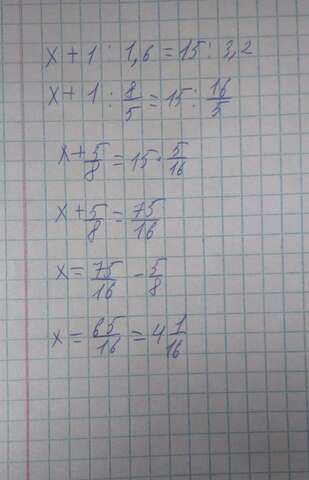 x + 1 : 1,6 = 15 : 3,2
x + 1 : 8/5 = 15 : 16/5
x + 5/8 = 15 · 5/16
x + 5/8 = 75/16
x = 75/16 - 5/8
x = 65/16 = 4 1/16